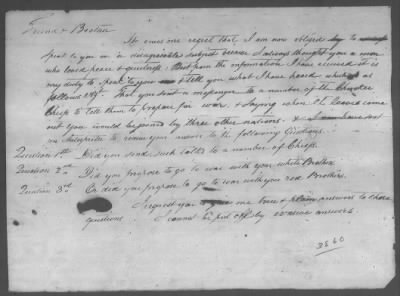 Friend & Brother
It gives me regret that I am now obliged to
speak to you on a disagreeable subject because I always thought you a man
who loved peace & quietness. But from the information I have received it is
my duty to speak to you & tell you what I have heard which is as
follows Viz. That you sent a messenger to a number of the Choctaw
Chiefs to tell them to prepare for war & saying when the leaves come
out you would be joined by three other nations. & I have sent
an Interpreter to receive your answer to the following questions.
Question 1st Did you send such talks to a number of Chiefs
Question 2d Did you propose to go to war with your white Brothers
Question 3rd Or did you propose to go to war with your red Brothers.
I request you to give me true & plain answers to those
questions. I cannot be put off by evasive answers.
3860